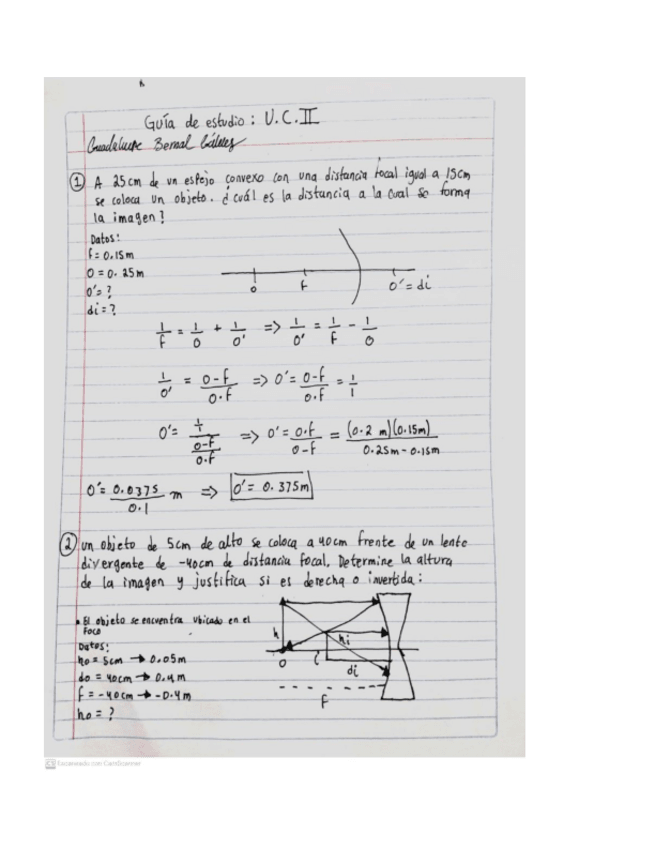 Guía de estudio: U.C.II
Guadalupe Bernal
① A 25cm de un espejo convexo con una distancia focal igual a 15cm
se coloca un objeto. ¿cuál es la distancia a la cual se forma
la imagen?
Datos:
f = 0.15m
O = 0.25m
O' = ?
di = ?
O F O' = di
1/F = 1/O + 1/O' => 1/O' = 1/F - 1/O
1/O' = O-F/O.F => O' = O-F/O.F = 1/1
O' = 1/1/O-F/O.F => O' = O.F/O-F = (0.2 m)(0.15m)/0.25m - 0.15m
O' = 0.0375/0.1 m => O' = 0.375m
② un objeto de 5cm de alto se coloca a 40cm frente de un lente
divergente de -40cm de distancia focal. Determine la altura
de la imagen y justifica si es derecha o invertida:
• El objeto se encuentra ubicado en el
Foco
Datos:
ho = 5cm → 0.05m
do = 40cm → 0.4m
f = -40cm → -0.4m
ho = ?
h hi
O i
di
F
Escaneado con CamScanner